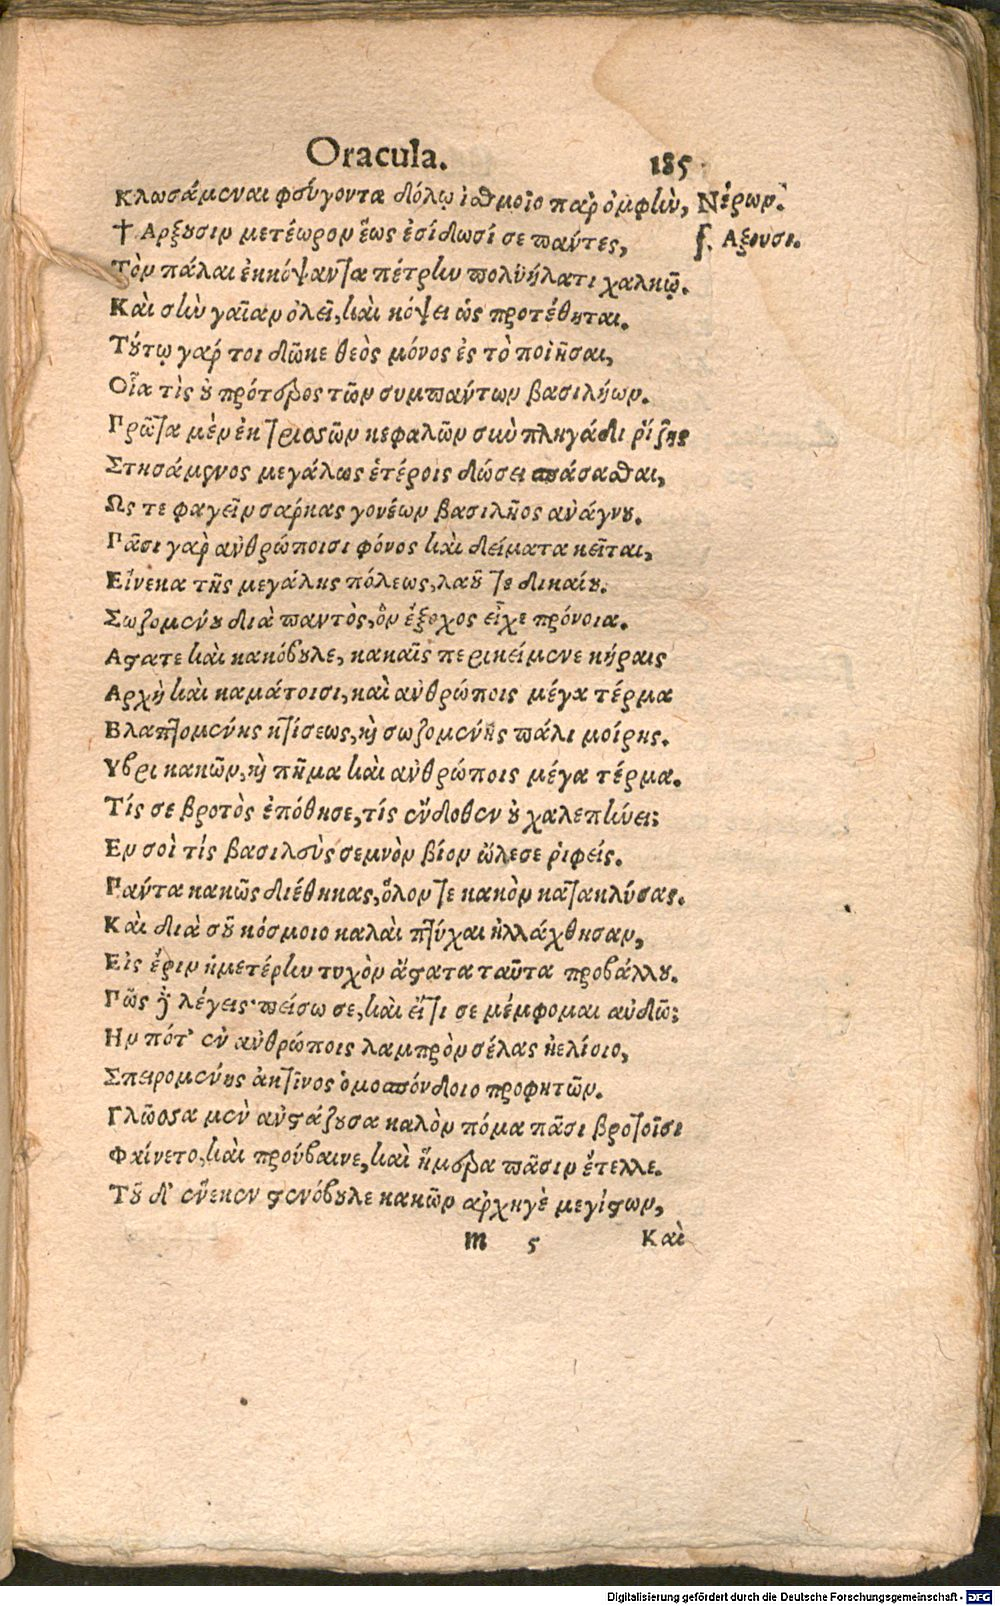 Oracula. 185
Κλωσάμεναι φεύγοντα δόλῳ ἰσθμοῖο παρ᾽ ὀμφὴν, Νέρων.
† Αρξουσιν μετέωρον ἕως ἐσίδωσί σε πάντες, ſ. Αξουσι.
Τὸν πάλαι ἐκκόψαντα πέτρην πολϋήλατι χαλκῷ.
Καὶ σὴν γαῖαν ὀλεῖ, καὶ κόψει ὡς προτέθηται.
Τούτῳ γάρ τοι δῶκε θεὸς μόνος ἐς τὸ ποιῆσαι,
Οἷα τὶς οὐ πρότερος τῶν συμπάντων βασιλήων.
Πρῶτα μὲν ἐκ τρισσῶν κεφαλῶν σὺν πληγάδι ῥίζης
Στησάμενος μεγάλως ἑτέροις δώσει πάσασθαι,
Ως τε φαγεῖν σάρκας γονέων βασιλῆος ἀνάγνου.
Πᾶσι γὰρ ἀνθρώποισι φόνος καὶ δείματα κεῖται,
Εἵνεκα τῆς μεγάλης πόλεως, λαοῦ τε δικαίου.
Σωζομένου διὰ παντὸς, ὃν ἔξοχος εἶχε πρόνοια.
Αστατε καὶ κακόβουλε, κακαῖς περικείμενε κήραις
Αρχὴ καὶ καμάτοισι, καὶ ἀνθρώποις μέγα τέρμα
Βλαπτομένης κτίσεως, καὶ σωζομένης πάλι μοίρης.
Υβρι κακῶν, καὶ πῆμα καὶ ἀνθρώποις μέγα τέρμα.
Τίς σε βροτὸς ἐπόθησε, τίς ἔνδοθεν οὐ χαλεπήνει;
Εν σοὶ τίς βασιλεὺς σεμνὸν βίον ὤλεσε ῥιφείς.
Πάντα κακῶς διέθηκας, ὅλον τε κακὸν κατακλύσας.
Καὶ διὰ σοῦ κόσμοιο καλαὶ πτύχαι ἠλλάχθησαν,
Εἰς ἔριν ἡμετέρην τυχὸν ἄστατα ταῦτα προβάλλου.
Πῶς λέγεις· πείσω σε, καὶ εἴ τι σε μέμφομαι αὐδῶ;
Ην πότ᾽ ἐν ἀνθρώποις λαμπρὸν σέλας ἠελίοιο,
Σπειρομένης ἀκτῖνος ὁμοσπόνδοιο προφητῶν.
Γλῶσσα μὲν αὐστάζουσα καλὸν πόμα πᾶσι βροτοῖσι
Φαίνετο, καὶ προύβαινε, καὶ ἥμερα πᾶσιν ἔτελλε.
Τοῦ δ᾽ ἕνεκεν στενόβουλε κακῶν ἀρχηγὲ μεγίστων,
m 5 Καὶ
Digitalisierung gefördert durch die Deutsche Forschungsgemeinschaft - DFG